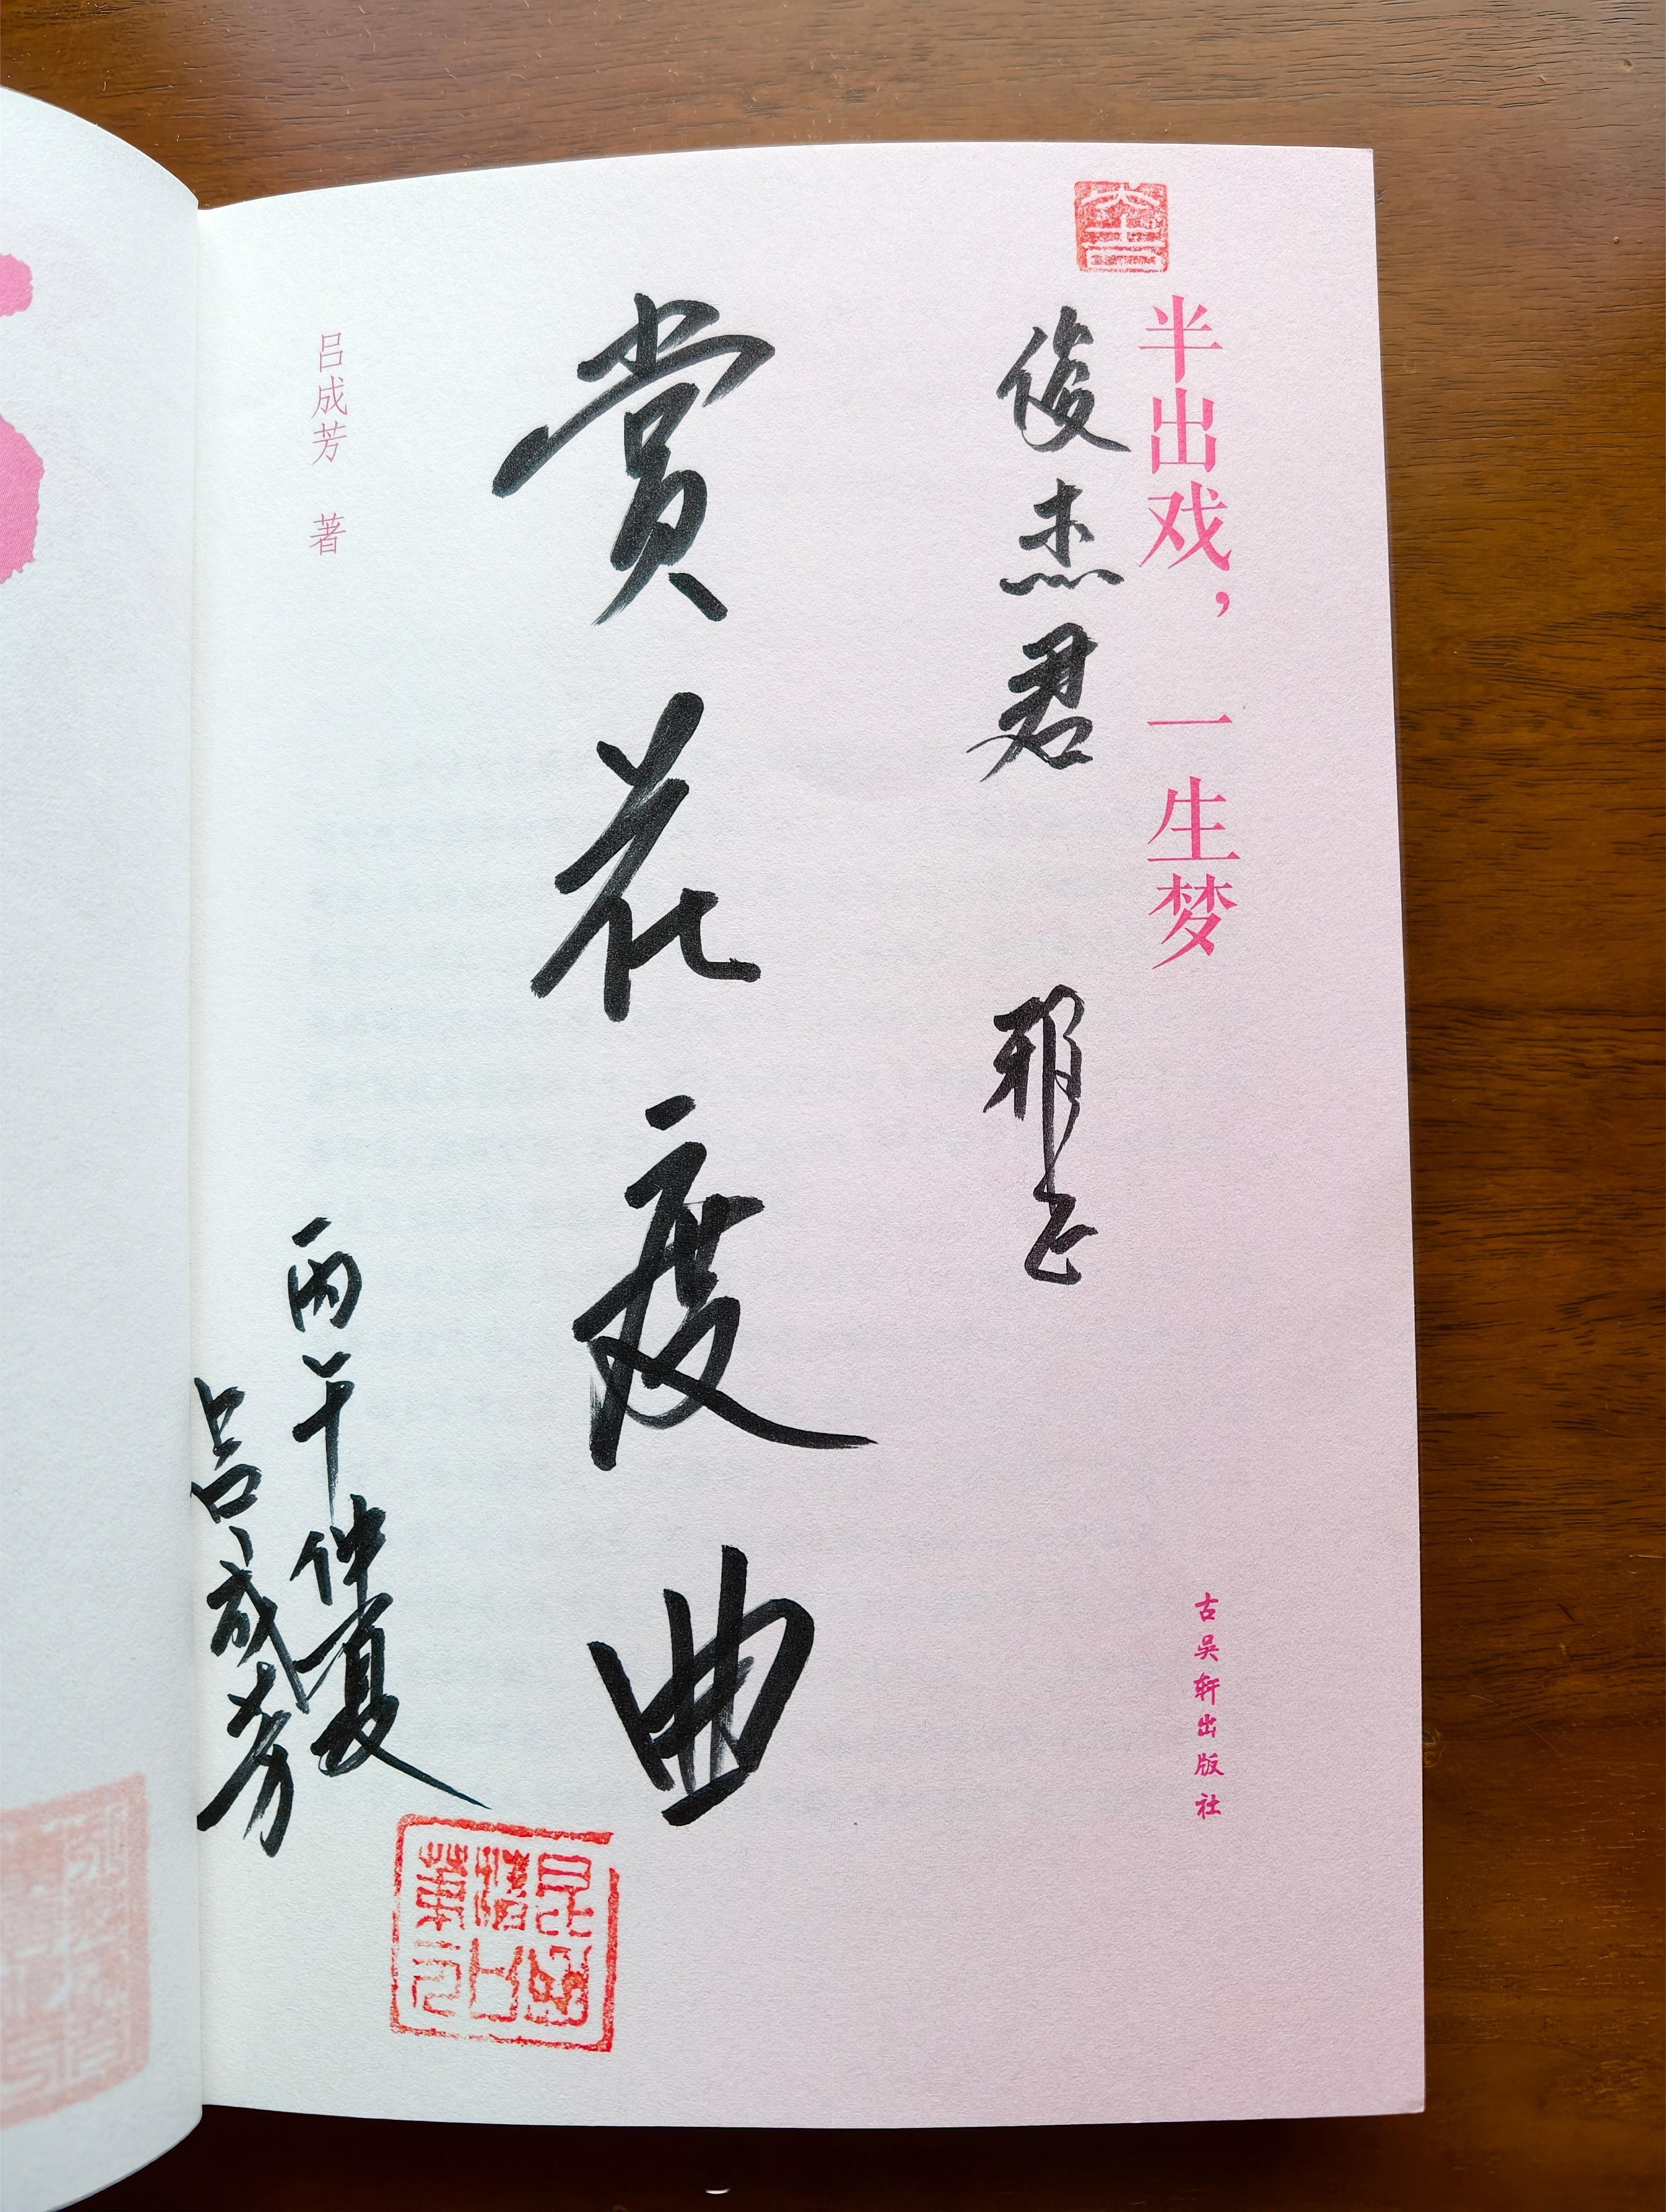 半出戏，一生梦
俊杰君 雅正
赏花度曲
丙午仲夏
吕成芳
吕成芳 著
古吴轩出版社
大吉